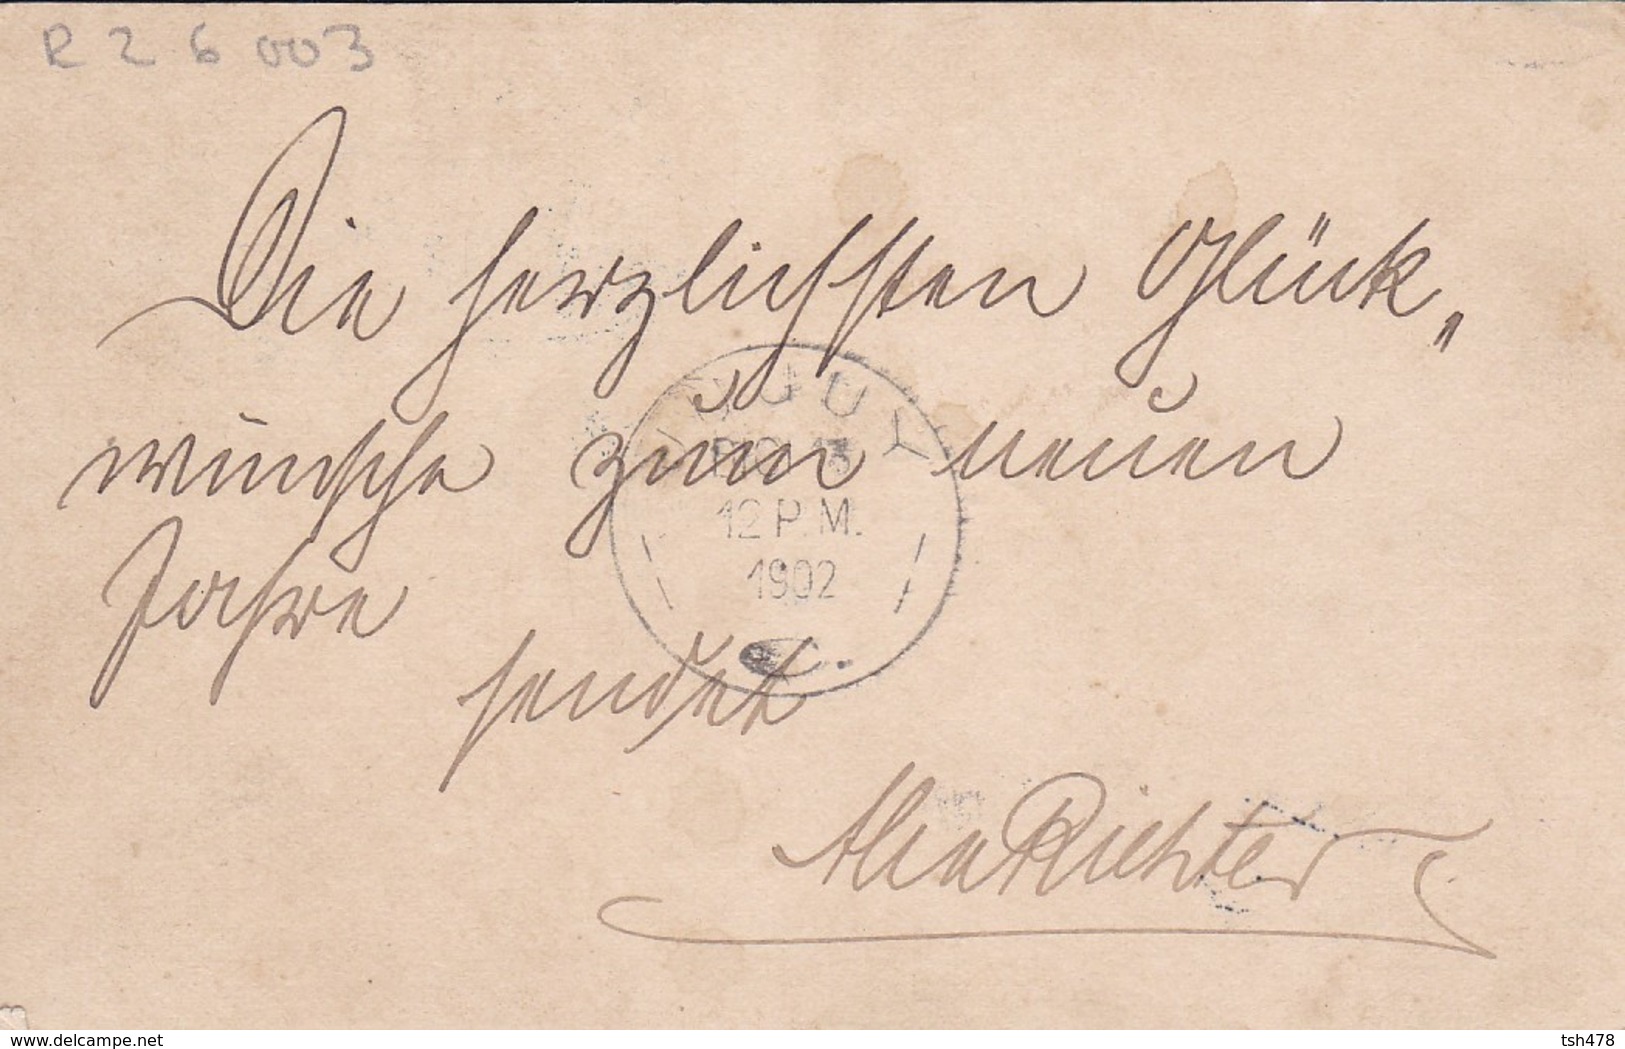 R 26 003
Die herzlichsten Glück„
wünsche zum neuen
Jahre
sendet
Richter
12 P.M.
1902
www.delcampe.net
tsh478